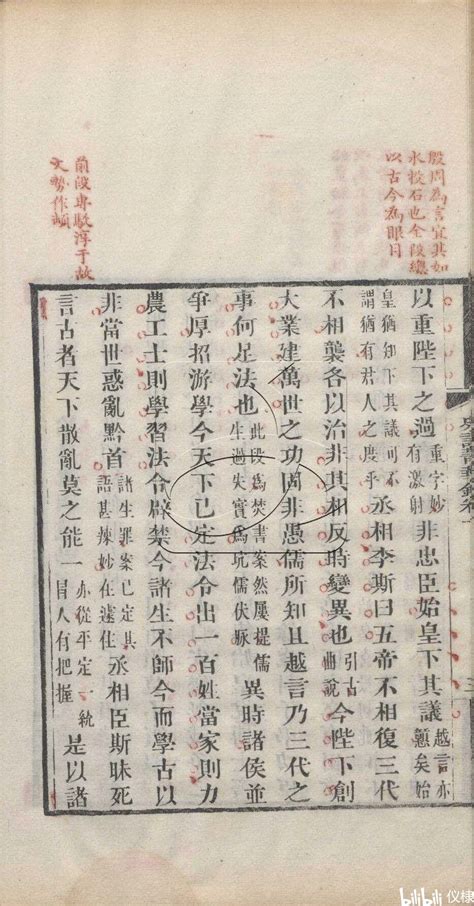 殷周為言宜其如
水投石也全段總
以古今為眼目
前段專駁淳于故
文勢作頓
以重陛下之過重字妙有激射非忠臣始皇下其議越言亦矣始
皇猶知下其議可不謂猶有君人之度乎丞相李斯曰五帝不相復三代
不相襲各以治非其相反時變異也引古曲說今陛下創
大業建萬世之功固非愚儒所知且越言乃三代之
事何足法也此段為焚書案然屢提儒生過失實為坑儒伏脈異時諸侯並
爭厚招游學今天下已定法令出一百姓當家則力
農工士則學習法令辟禁今諸生不師今而學古以
非當世惑亂黔首諸生罪案已定其語甚辣妙在遽住丞相臣斯昧死
言古者天下散亂莫之能一亦從平定一統冒人有把握是以諸
bilibili 仪棣